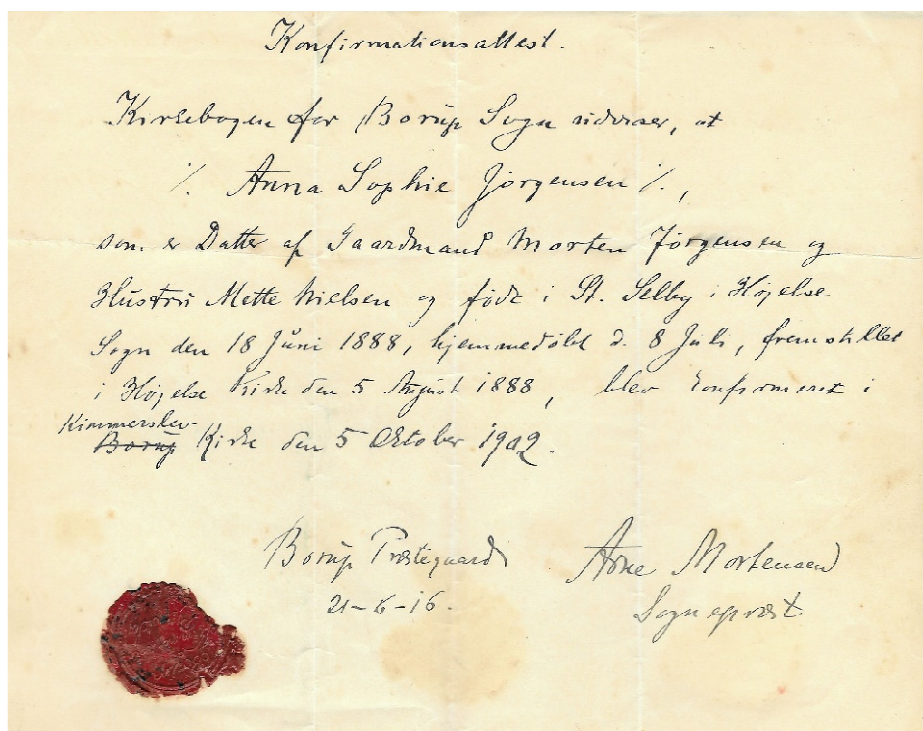 Konfirmationsattest.
Kirkebogen for Borup Sogn udviser, at
./. Anna Sophie Jørgensen ./. ,
som er Datter af Gaardmand Morten Jørgensen og
Hustru Mette Nielsen og født i St. Selby i Højelse
Sogn den 18 Juni 1888, hjemmedøbt d. 8 Juli, fremstillet
i Højelse Kirke den 5 August 1888, blev konfirmeret i
Kimmerslev-
Borup Kirke den 5 Oktober 1902.
Borup Præstegaard
21-6-16.
Arne Mortensen
Sognepræst